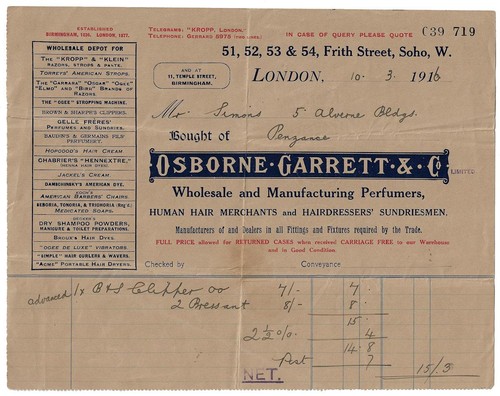 ESTABLISHED
BIRMINGHAM, 1826. LONDON, 1877.
WHOLESALE DEPOT FOR
The "KROPP" & "KLEIN"
RAZORS, STROPS & PASTE.
TORREYS' AMERICAN STROPS.
The "CARRARA" "OSGAR" "OGEE"
"ELMO" and "BIRD" BRANDS OF
RAZORS.
THE "OGEE" STROPPING MACHINE.
BROWN & SHARPE'S CLIPPERS.
GELLE FRÈRES'
PERFUMES AND SUNDRIES.
HOPGOOD'S HAIR CREAM
CHABRIER'S "HENNEXTRE,"
JACKEL'S CREAM.
KOCH'S
AMERICAN BARBERS' CHAIRS.
MEDICATED SOAPS.
DRY SHAMPOO POWDERS,
MANICURE & TOILET PREPARATIONS.
BROUX'S HAIR DYES.
"OGEE DE LUXE" VIBRATORS.
"SIMPLE" HAIR CURLERS & WAVERS.
"ACME" PORTABLE HAIR DRYERS.
TELEGRAMS: "KROPP, LONDON."
TELEPHONE: GERRARD 5975 (TWO LINES.)
IN CASE OF QUERY PLEASE QUOTE
C39 719
51, 52, 53 & 54, Frith Street, Soho, W.
AND AT
11, TEMPLE STREET,
BIRMINGHAM.
LONDON, 10 . 3 . 1916
Mr Simons 5 Alverne Bldgs.
Bought of Penzance
OSBORNE · GARRETT · & Co
LIMITED
Wholesale and Manufacturing Perfumers,
HUMAN HAIR MERCHANTS and HAIRDRESSERS' SUNDRIESMEN.
Manufacturers of and Dealers in all Fittings and Fixtures required by the Trade.
FULL PRICE allowed for RETURNED CASES when received CARRIAGE FREE to our Warehouse
and in Good Condition.
Checked by Conveyance
advanced 1x B&S Clipper 00 7/- 7 .
2 Bressant 8/- 8 .
15 .
2 1/2 % 4
14.8
Post 7
15/.3
NET.